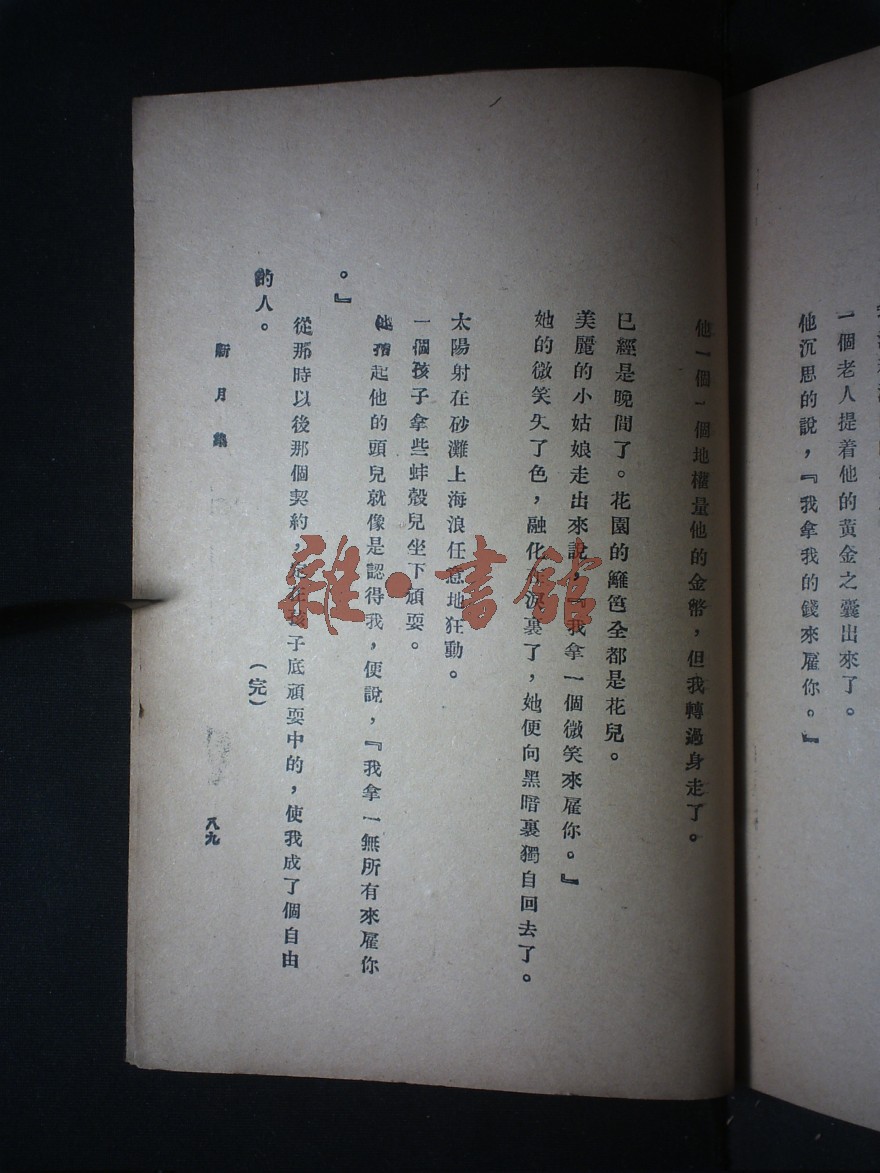 一個老人提着他的黄金之囊出來了。
他沉思的說，『我拿我的錢來雇你。』
他一個一個地權量他的金幣，但我轉過身走了。
已經是晚間了。花園的籬笆全都是花兒。
美麗的小姑娘走出來說，『我拿一個微笑來雇你。』
她的微笑失了色，融化 淚裏了，她便向黑暗裏獨自回去了。
太陽射在砂灘上海浪任意地狂動。
一個孩子拿些蚌殼兒坐下頑耍。
他 起他的頭兒就像是認得我，便說，『我拿一無所有來雇你
。』
從那時以後那個契約， 在孩子底頑耍中的，使我成了個自由
的人。
（完）
新月集
八九
雜·書館